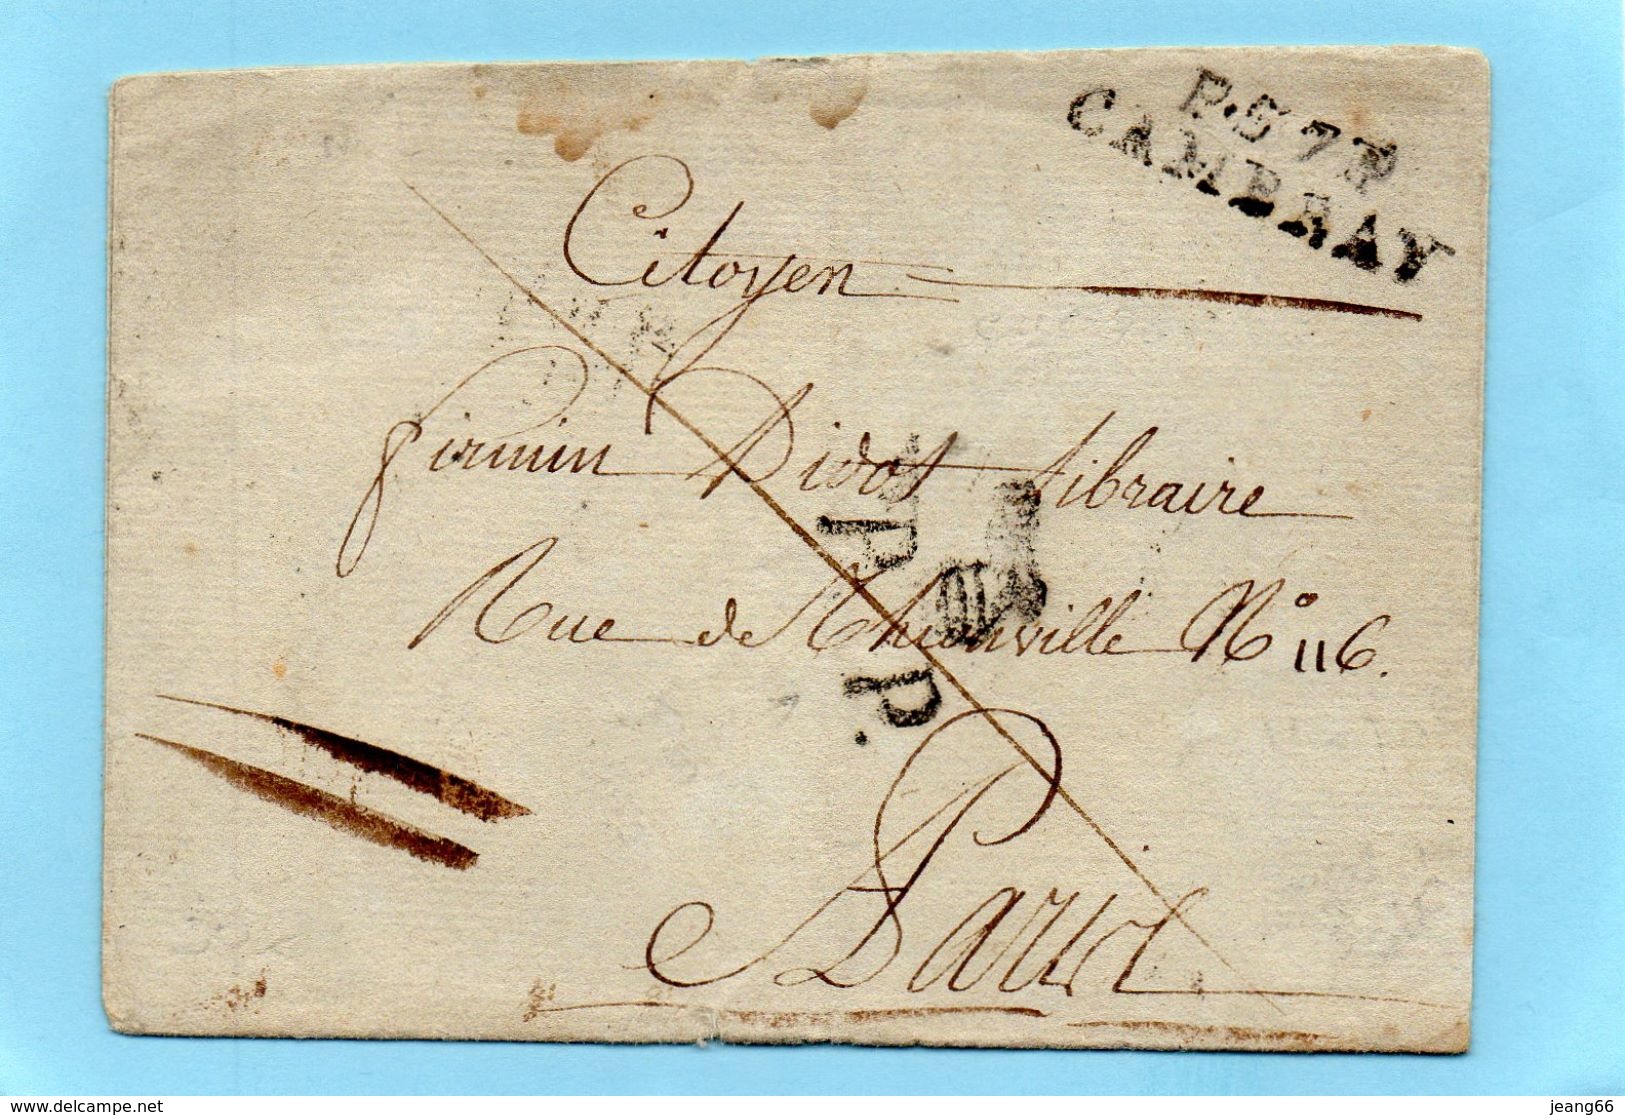 P.57P
CAMBRAY
Citoyen
firmin Didot libraire
P. P.
Rue de Thionville N° 116.
A Paris
www.delcampe.net
jeang66